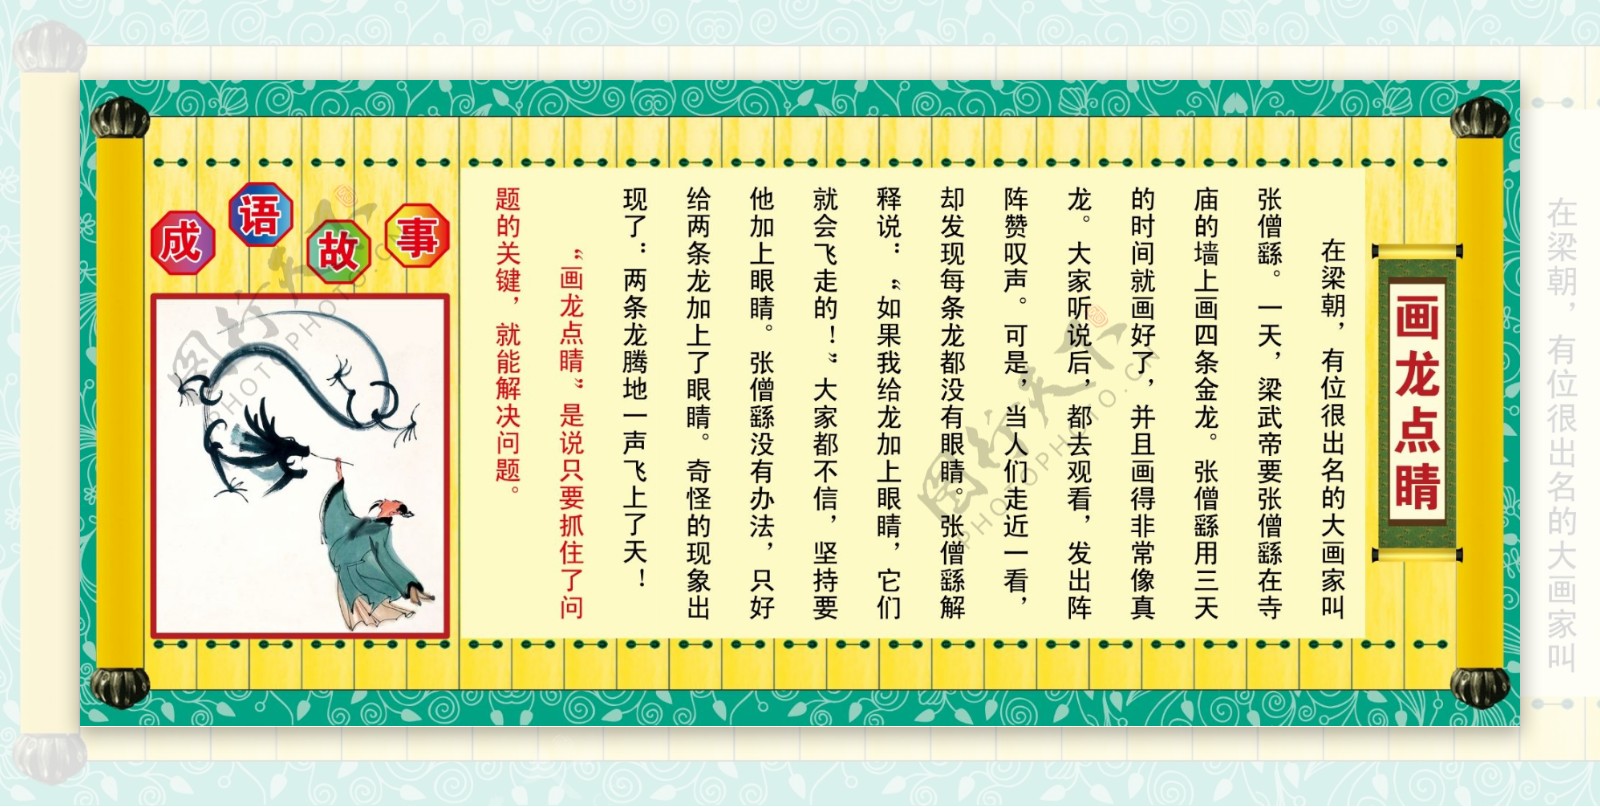 成语故事
画龙点睛
在梁朝，有位很出名的大画家叫
张僧繇。一天，梁武帝要张僧繇在寺
庙的墙上画四条金龙。张僧繇用三天
的时间就画好了，并且画得非常像真
龙。大家听说后，都去观看，发出阵
阵赞叹声。可是，当人们走近一看，
却发现每条龙都没有眼睛。张僧繇解
释说：“如果我给龙加上眼睛，它们
就会飞走的！”大家都不信，坚持要
他加上眼睛。张僧繇没有办法，只好
给两条龙加上了眼睛。奇怪的现象出
现了：两条龙腾地一声飞上了天！
“画龙点睛”是说只要抓住了问
题的关键，就能解决问题。
在梁朝，有位很出名的大画家叫
图行天下
PHOTOPHOTO.CN
图行天下
PHOTOPHOTO.CN